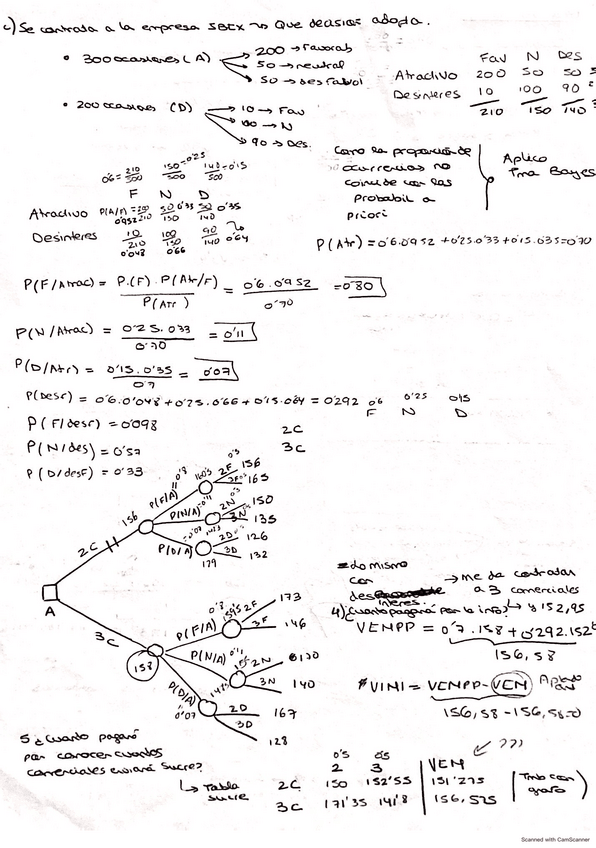 c) Se contrata a la empresa SBEX → Que decision adopta.
• 300 ocasiones (A)
200 → Favorab
50 → neutral
50 → desfavol
• 200 ocasiones (D)
10 → Fav
100 → N
90 → Des.
Fav N Des
Atractivo 200 50 50
Desinteres 10 100 90
210 150 140
0'6 = 210/500 150/500 = 0'25 140/500 = 0'15
F N D
Atractivo P(A/F) = 200/210 50/150 0'33 50/140 0'35
0'952
Desinteres 10/210 100/150 90/140 0'64
0'048 0'66
Como la proporción de
ocurrencias no
coincide con las
probabil a
priori
Aplico
Tma Bayes
P(Atr) = 0'6.0'952 + 0'25.0'33 + 0'15.0'35 = 0'70
P(F/Atrac) = P.(F) . P(Atr/F) / P(Atr) = 0'6.0'952 / 0'70 = 0'80
P(N/Atrac) = 0'25.033 / 0'70 = 0'11
P(D/Atr) = 0'15.0'35 / 0'7 = 0'07
P(Desr) = 0'6.0'048 + 0'25.0'66 + 0'15.064 = 0'292
0'6 0'25 015
F N D
P(F/desr) = 0'098
P(N/des) = 0'57
P(D/desf) = 0'33
2C
3C
A
2C
156
P(F/A) = 0'8
2F 156
3F 165
P(N/A) = 0'11
2N 150
3N 135
P(D/A) = 0'07
129
2D 126
3D 132
3C
158
P(F/A) 0'8
159'5
2F 173
3F 146
P(N/A) 0'11
155
2N 170
3N 140
P(D/A) 0'07
2D 167
3D 128
lo mismo
con
desinteres
→ me da contratar
a 3 comerciales
y 152,95
4) ¿Cuanto pagará por la info?
VENPP = 0'7.158 + 0'292.152
156,58
VINI = VENPP - VEN
156,58 - 156,58 = 0
5 ¿Cuanto pagará
por conocer cuantos
comerciales enviará Sucre?
→ Tabla
Sucre
0'5 0'5
2 3 VEN
2C 150 152'55 151'275
3C 171'35 141'8 156,575
???
Scanned with CamScanner